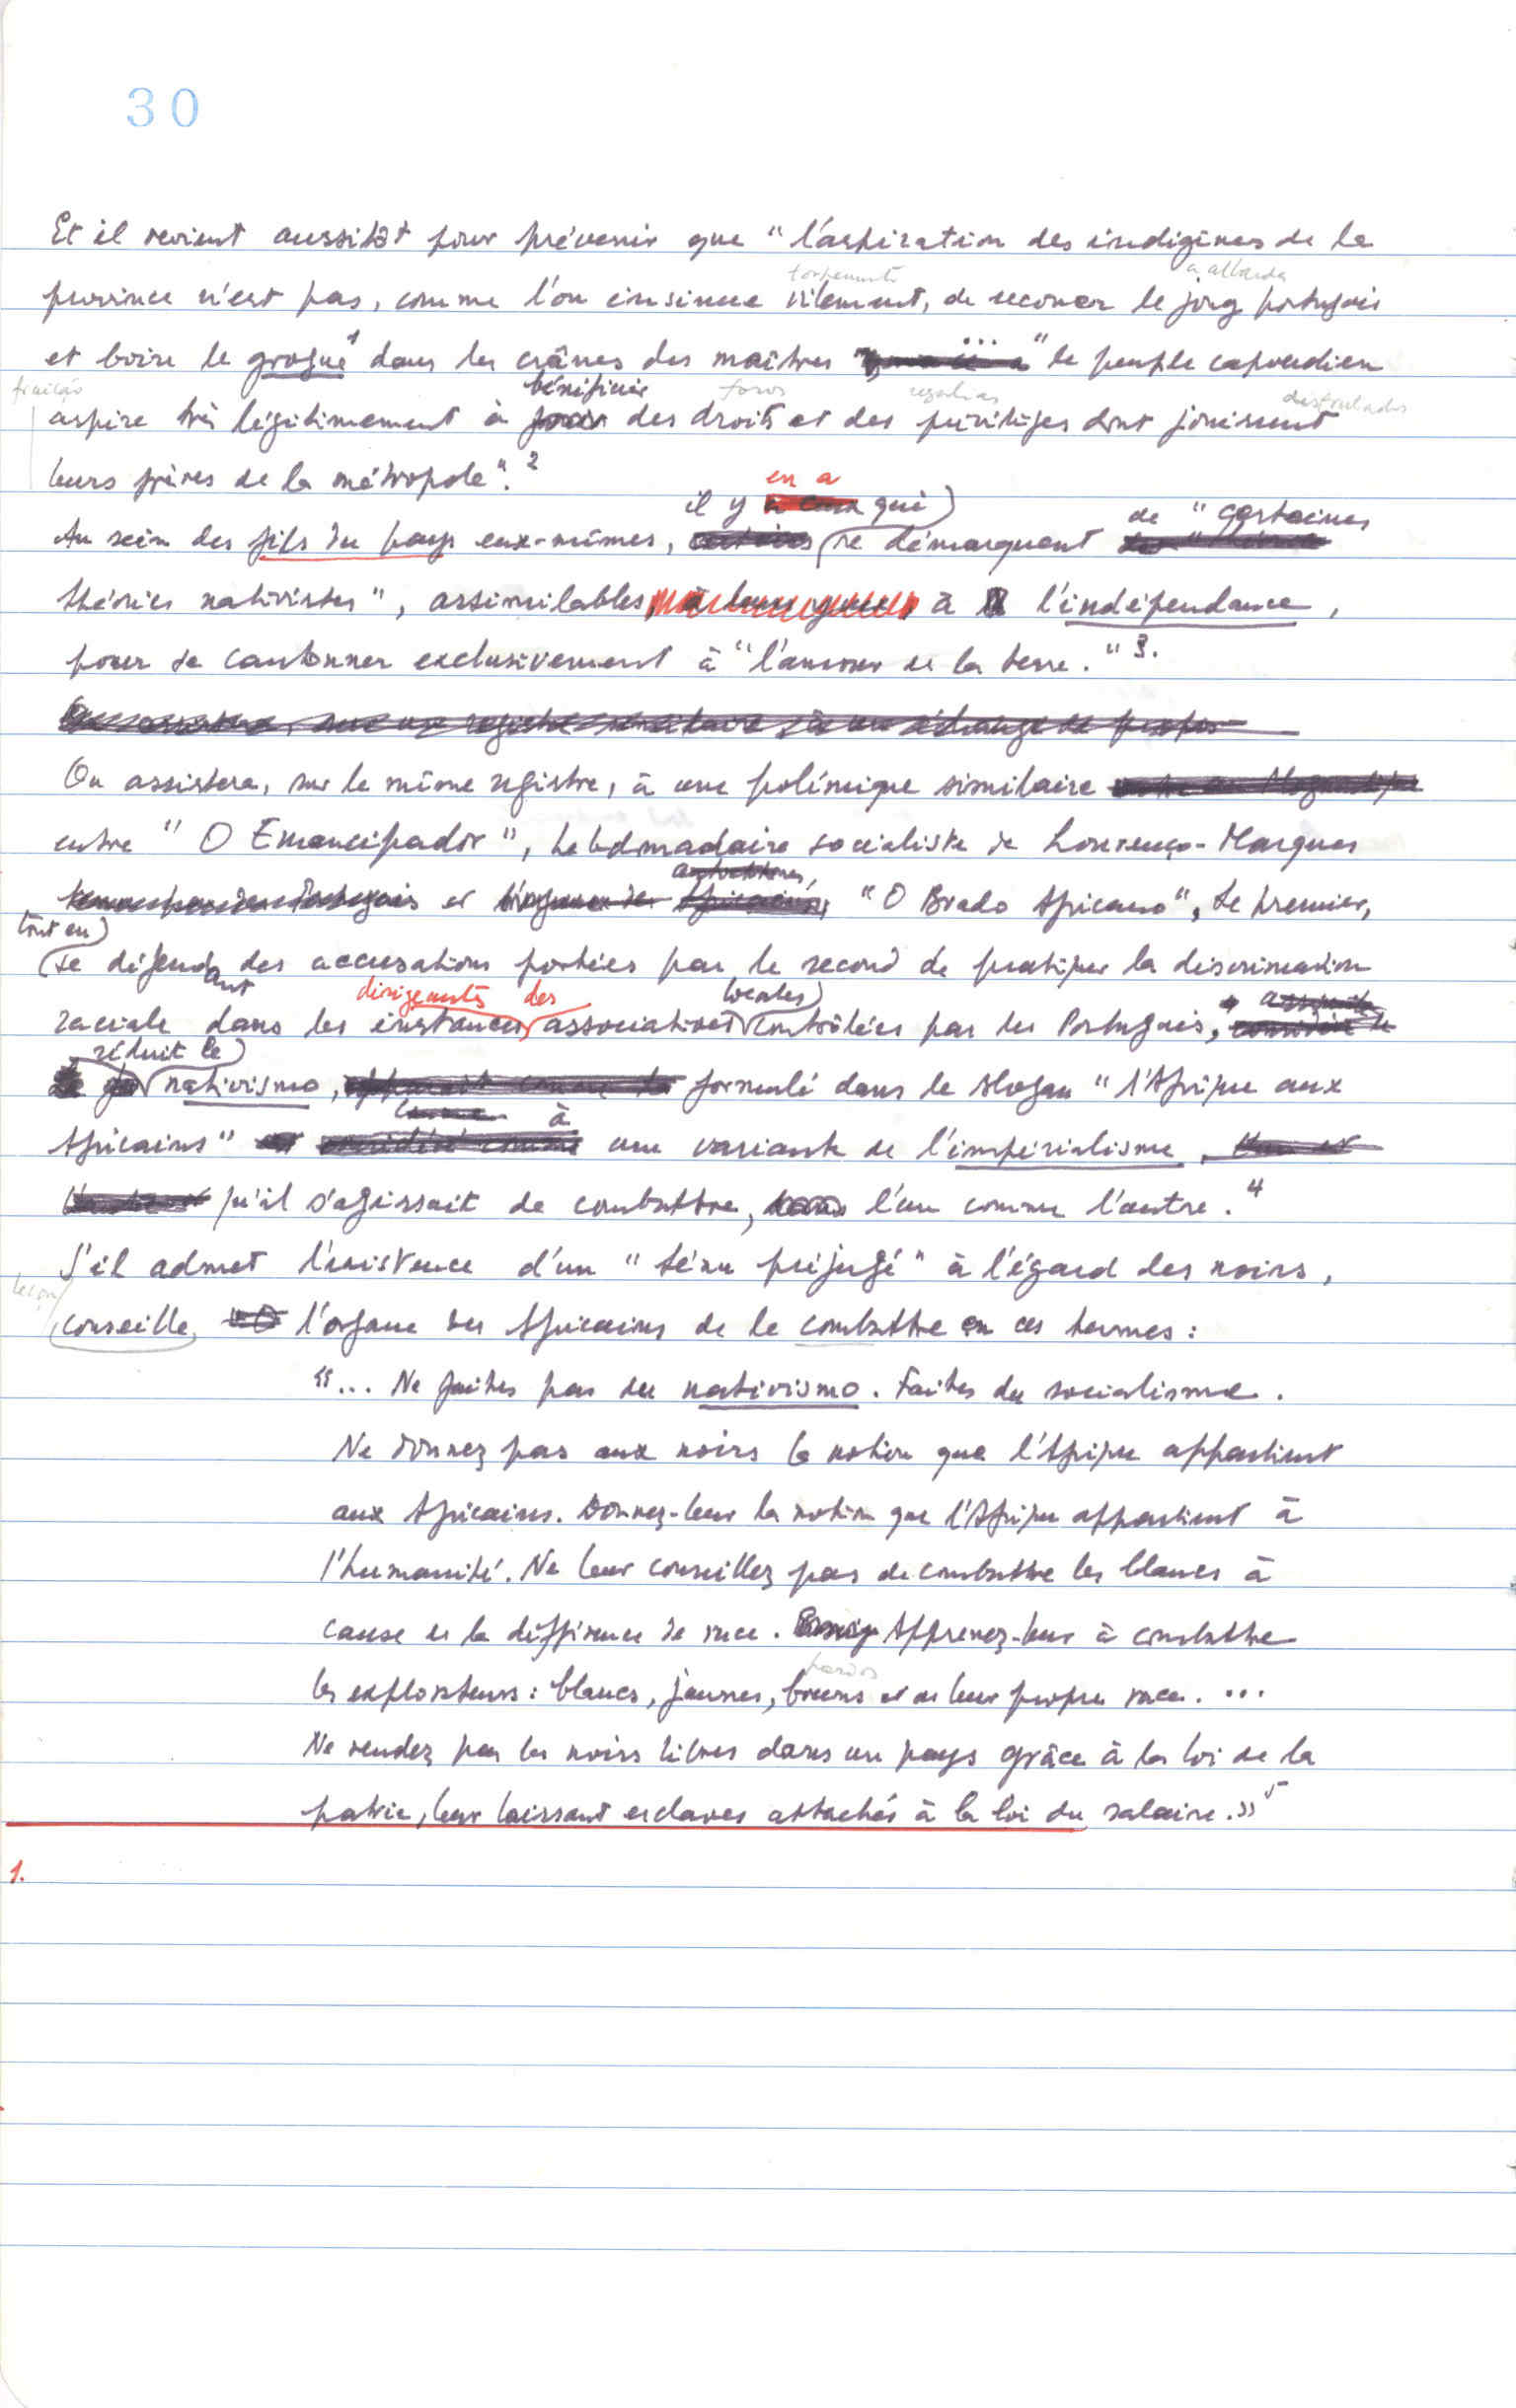 30
Et il revient aussitôt pour prévenir que "l'aspiration des indigènes de la
torpemente a albarda
province n'est pas, comme l'on insinue vilement, de secouer le joug portugais
et boire le grogue¹ dans les crânes des maîtres ... " le peuple capverdien
fruição bénéficier foros regalias desfrutados
aspire très légitimement à des droits et des privilèges dont jouissent
leurs frères de la métropole".²
en a
il y qui) de "certaines
Au sein des fils du pays eux-mêmes, se démarquent
théories nativistes", assimilables à l'indépendance,
pour se cantonner exclusivement à "l'amour de la terre."³.
On assistera, sur le même registre, à une polémique similaire
entre "O Emancipador", hebdomadaire socialiste de Lourenço-Marques
et "O Brado Africano", le premier,
tout en)
se défendant des accusations portées par le second de pratiquer la discrimination
dirigeants des locales)
raciale dans les instances associatives contrôlées par les Portugais,
réduit le)
nativismo, formulé dans le slogan "l'Afrique aux
à
Africains" une variante de l'impérialisme,
qu'il s'agissait de combattre, l'un comme l'autre.⁴
S'il admet l'existence d'un "ténu préjugé" à l'égard des noirs,
conseille l'organe des Africains de le combattre en ces termes:
"... Ne faites pas du nativismo. Faites du socialisme.
Ne donnez pas aux noirs la notion que l'Afrique appartient
aux Africains. Donnez-leur la notion que l'Afrique appartient à
l'humanité. Ne leur conseillez pas de combattre les blancs à
cause de la différence de race. Apprenez-leur à combattre
pardos
les exploiteurs: blancs, jaunes, bruns et de leur propre race. ...
Ne rendez pas les noirs libres dans un pays grâce à la loi de la
patrie, leur laissant esclaves attachés à la loi du salaire.»⁵
1.